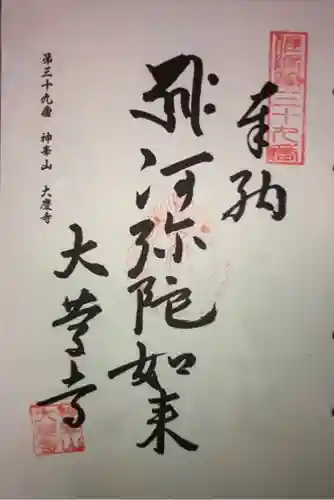 奉納
阿弥陀如来
大慶寺
第三十九番 神峯山 大慶寺
三十九番